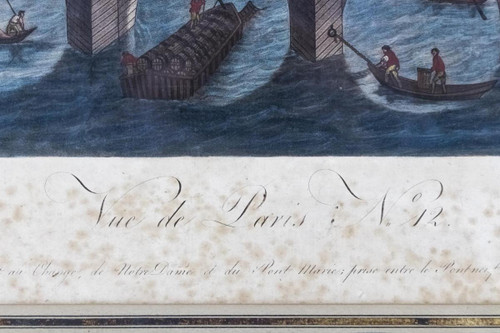 Vue de Paris : Nº 12.
au Change, de Notre Dame & du Pont Marie; prise entre le Pontneuf